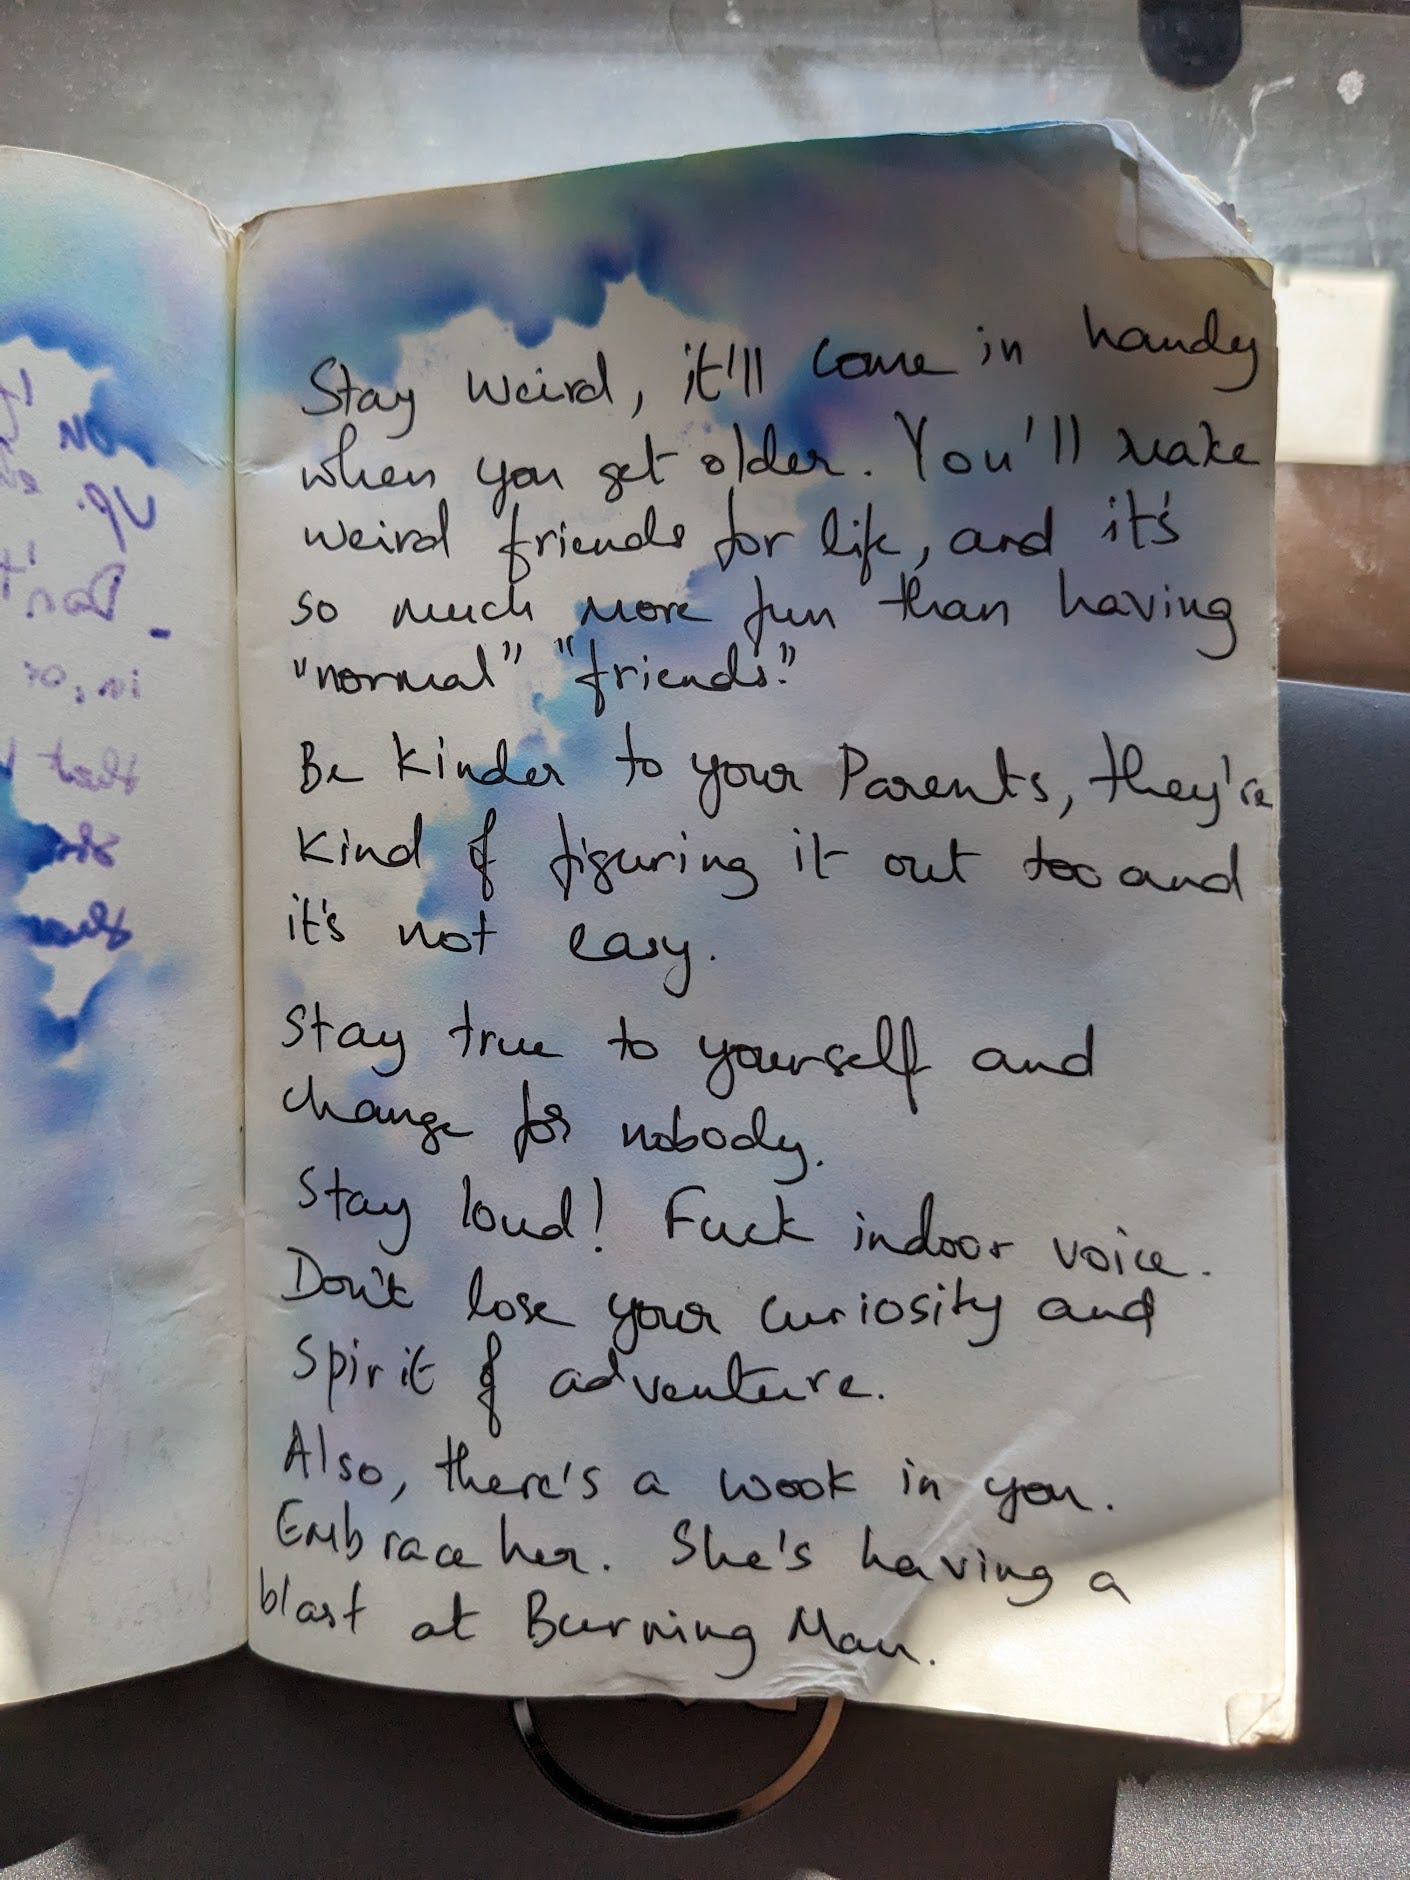 Stay weird, it'll come in handy
when you get older. You'll make
weird friends for life, and it's
so much more fun than having
"normal" "friends."
Be kinder to your Parents, they're
kind of figuring it out too and
it's not easy.
Stay true to yourself and
change for nobody.
Stay loud! Fuck indoor voice.
Don't lose your curiosity and
spirit of adventure.
Also, there's a wook in you.
Embrace her. She's having a
blast at Burning Man.